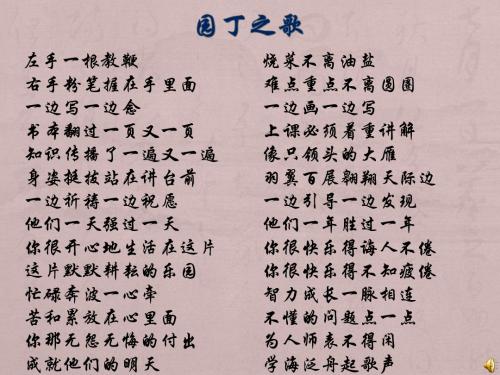 园丁之歌
左手一根教鞭
右手粉笔握在手里面
一边写一边念
书本翻过一页又一页
知识传播了一遍又一遍
身姿挺拔站在讲台前
一边祈祷一边祝愿
他们一天强过一天
你很开心地生活在这片
这片默默耕耘的乐园
忙碌奔波一心牵
苦和累放在心里面
你那无怨无悔的付出
成就他们的明天
烧菜不离油盐
难点重点不离圆圈
一边画一边写
上课必须着重讲解
像只领头的大雁
羽翼百展翱翔天际边
一边引导一边发现
他们一年胜过一年
你很快乐得诲人不倦
你很快乐得不知疲倦
智力成长一脉相连
不懂的问题点一点
为人师表不得闲
学海泛舟起歌声